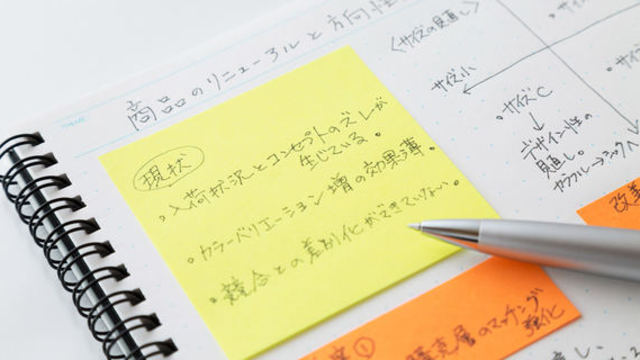 商品のリニューアルと方向性
<サイズの見直し>
サイズ小
・サイズC
↓
デザイン性の
見直し。
カラフル→シック
現状
・入荷状況とコンセプトのズレが
生じている。
・カラーバリエーション増の効果薄。
・競合との差別化ができていない。
改善
①
購買層のマッチング
強化